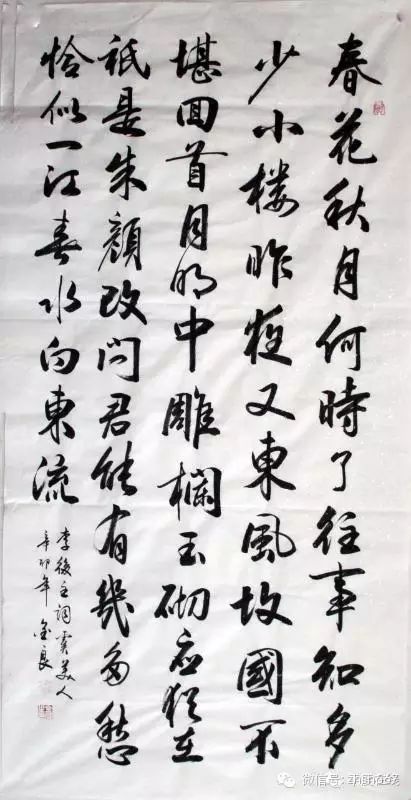 春花秋月何時了往事知多
少小楼昨夜又東風故國不
堪回首月明中雕欄玉砌应犹在
祇是朱顏改问君能有幾多愁
恰似一江春水向東流
李後主词虞美人
辛卯年 金良
微信号: